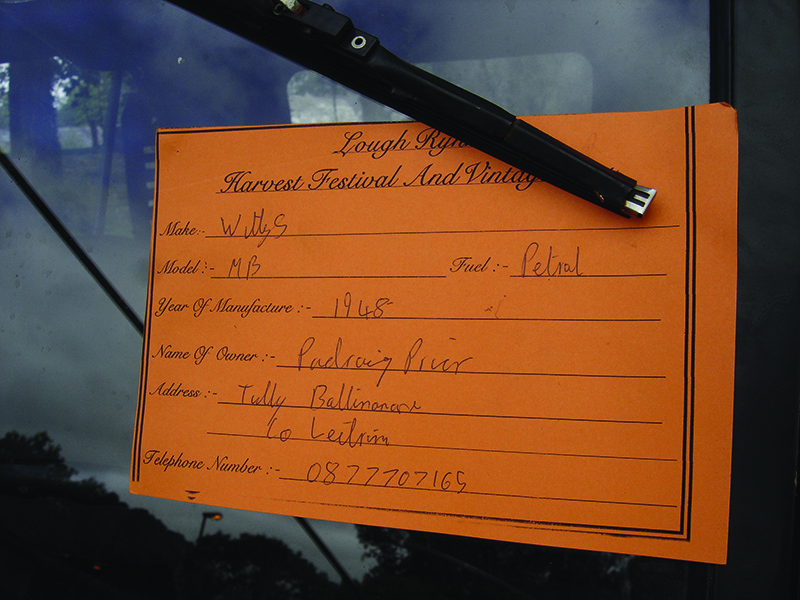 Lough Ryn
Harvest Festival And Vintag
Make:- Willys
Model:- MB Fuel:- Petrol
Year Of Manufacture:- 1948
Name Of Owner:- Padraig Prior
Address:- Tully Ballinamore
Co Leitrim
Telephone Number:- 0877707165